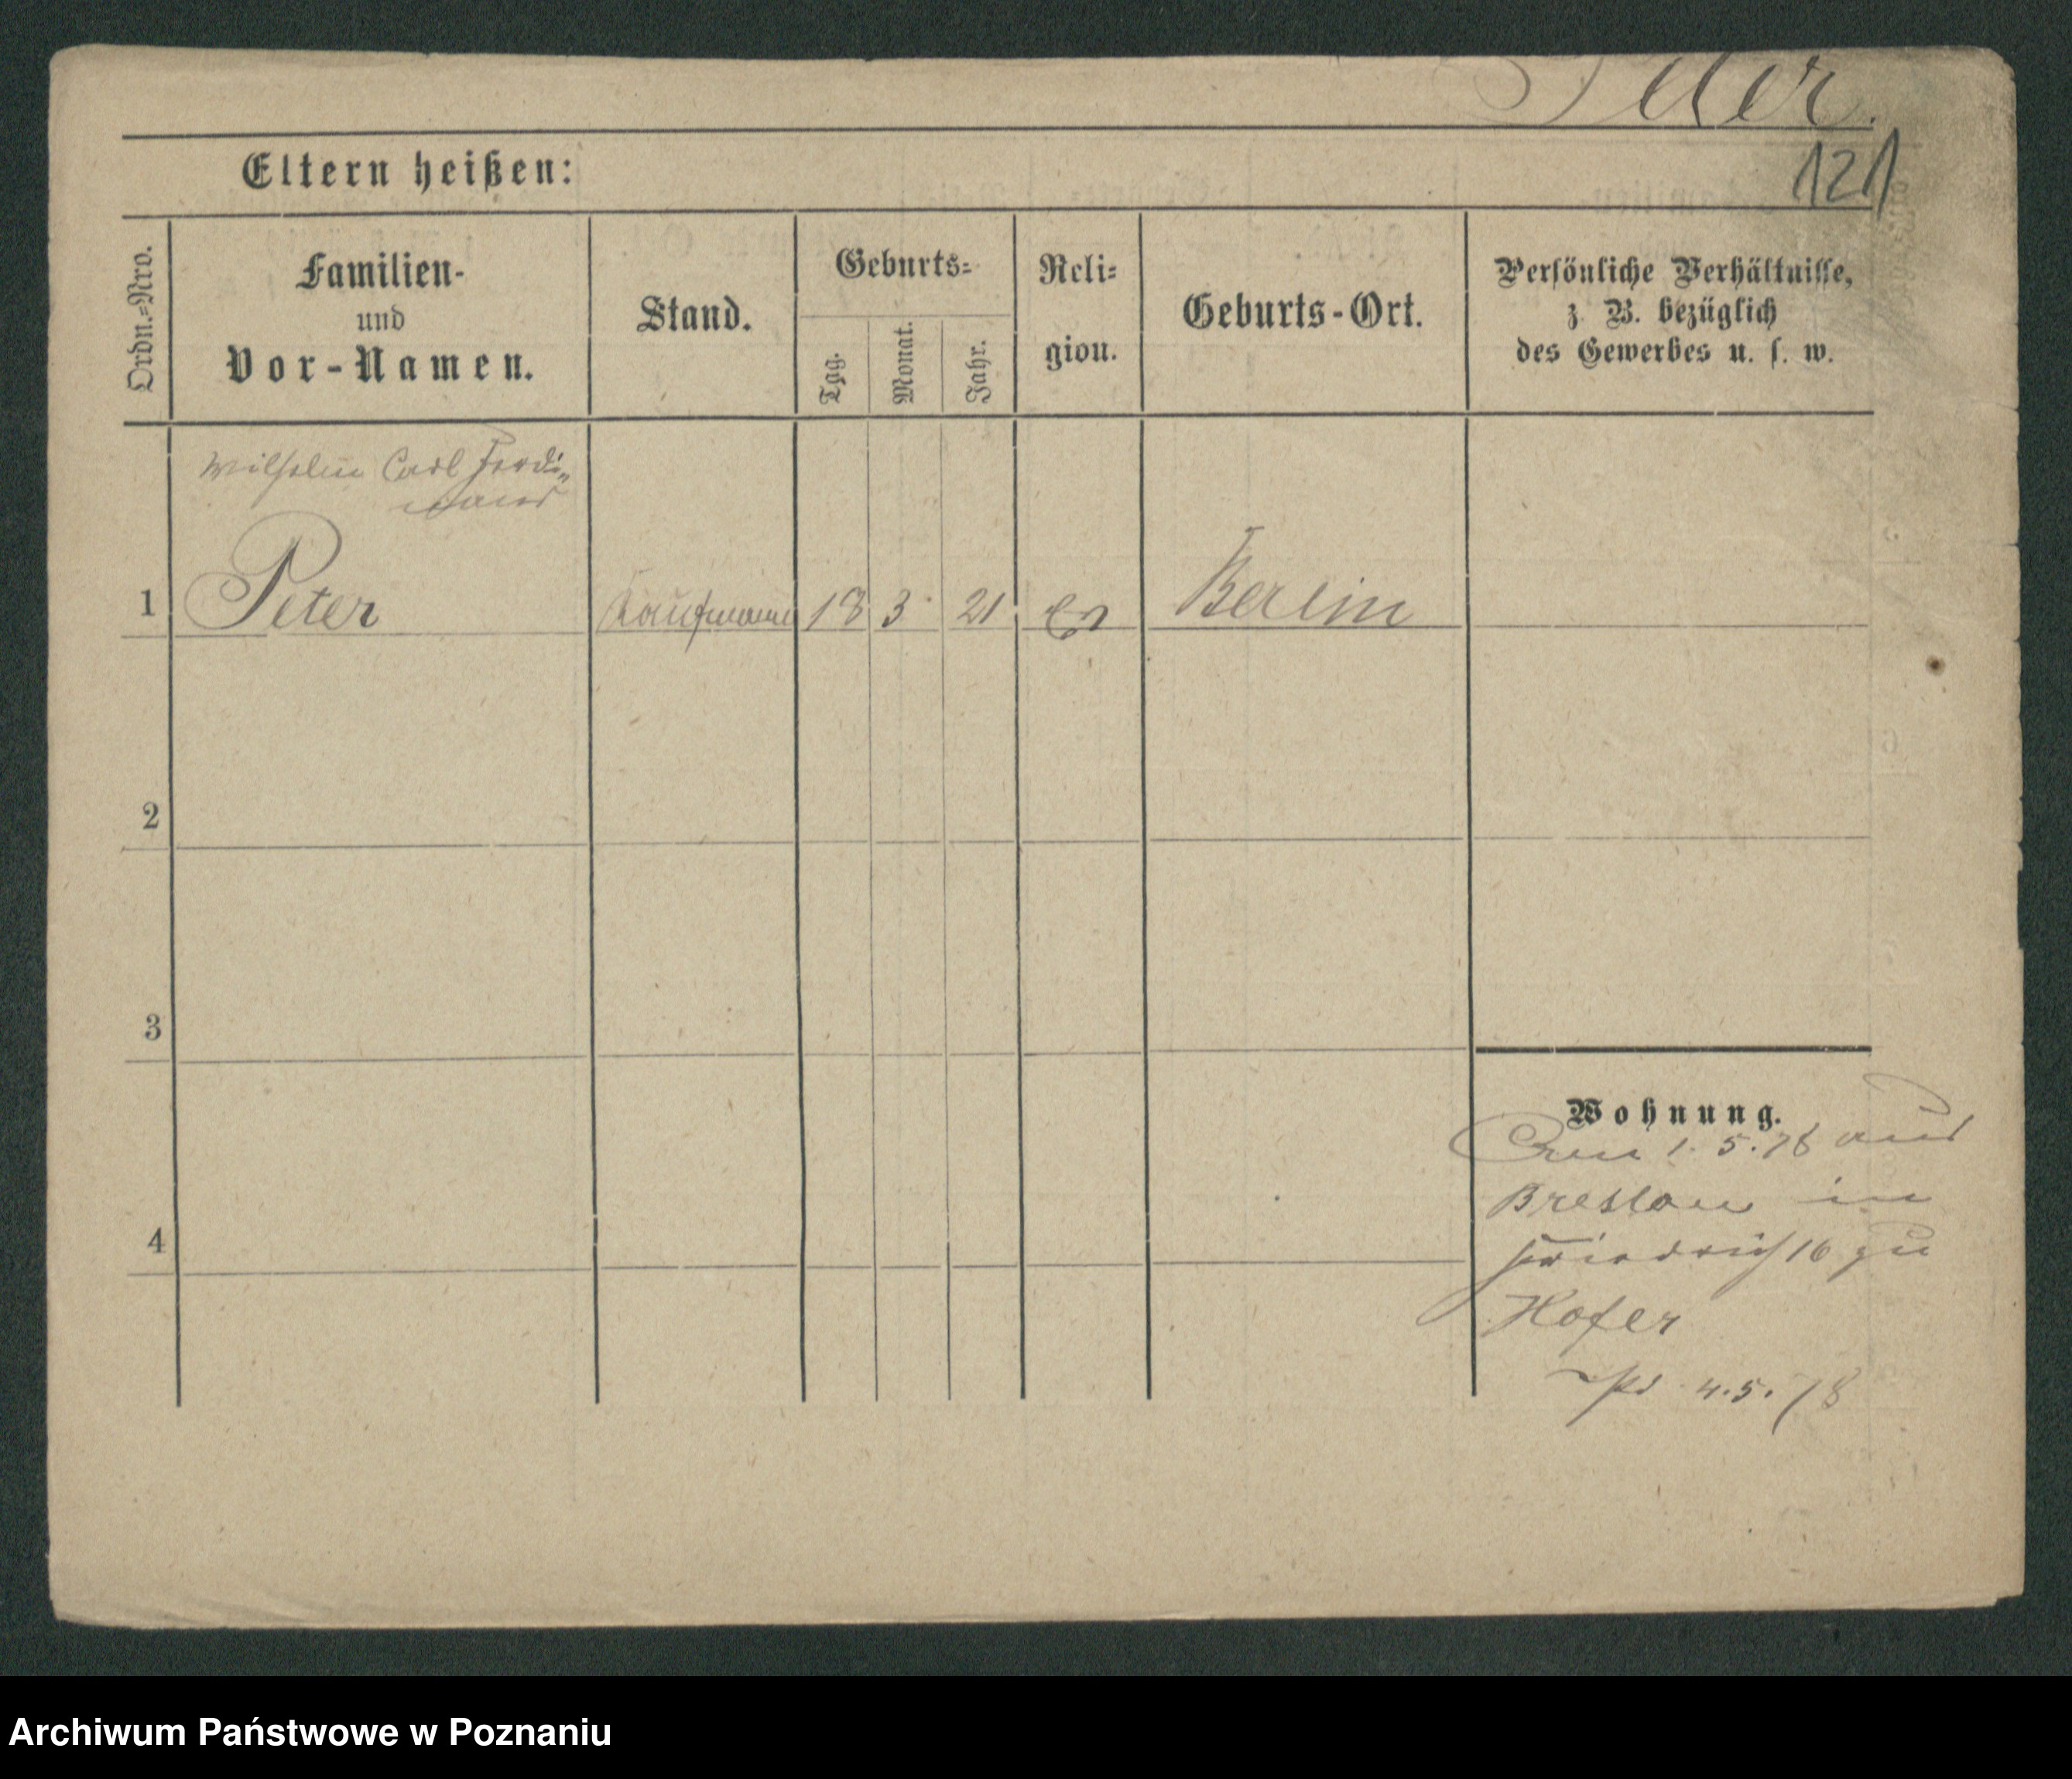 Peter.
121
Eltern heißen:
Ordn.-Nro.
Familien-
und
Vor-Namen.
Stand.
Geburts-
Tag.
Monat.
Jahr.
Reli-
gion.
Geburts-Ort.
Persönliche Verhältnisse,
z. B. bezüglich
des Gewerbes u. s. w.
Wilhelm Carl Ferdi-
nand
1 Peter Kaufmann 18 3 21 ev Berlin
2
3
4
Wohnung.
1.5.78 aus
Breslau in
Friedrich 16 zu
Hofer
4.5.78
Archiwum Państwowe w Poznaniu